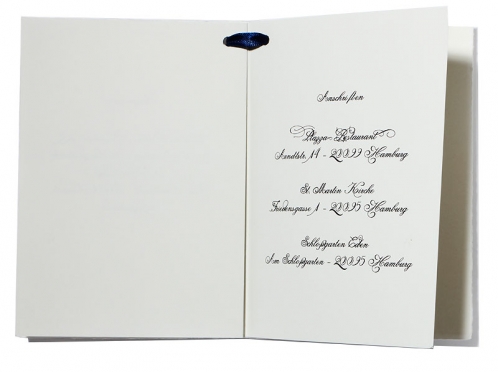 Anschriften
Piazza-Restaurant
Arndtstr. 14 - 20099 Hamburg
St. Martin Kirche
Friedensgasse 1 - 20095 Hamburg
Schloßgarten Eden
Am Schloßgarten - 20095 Hamburg